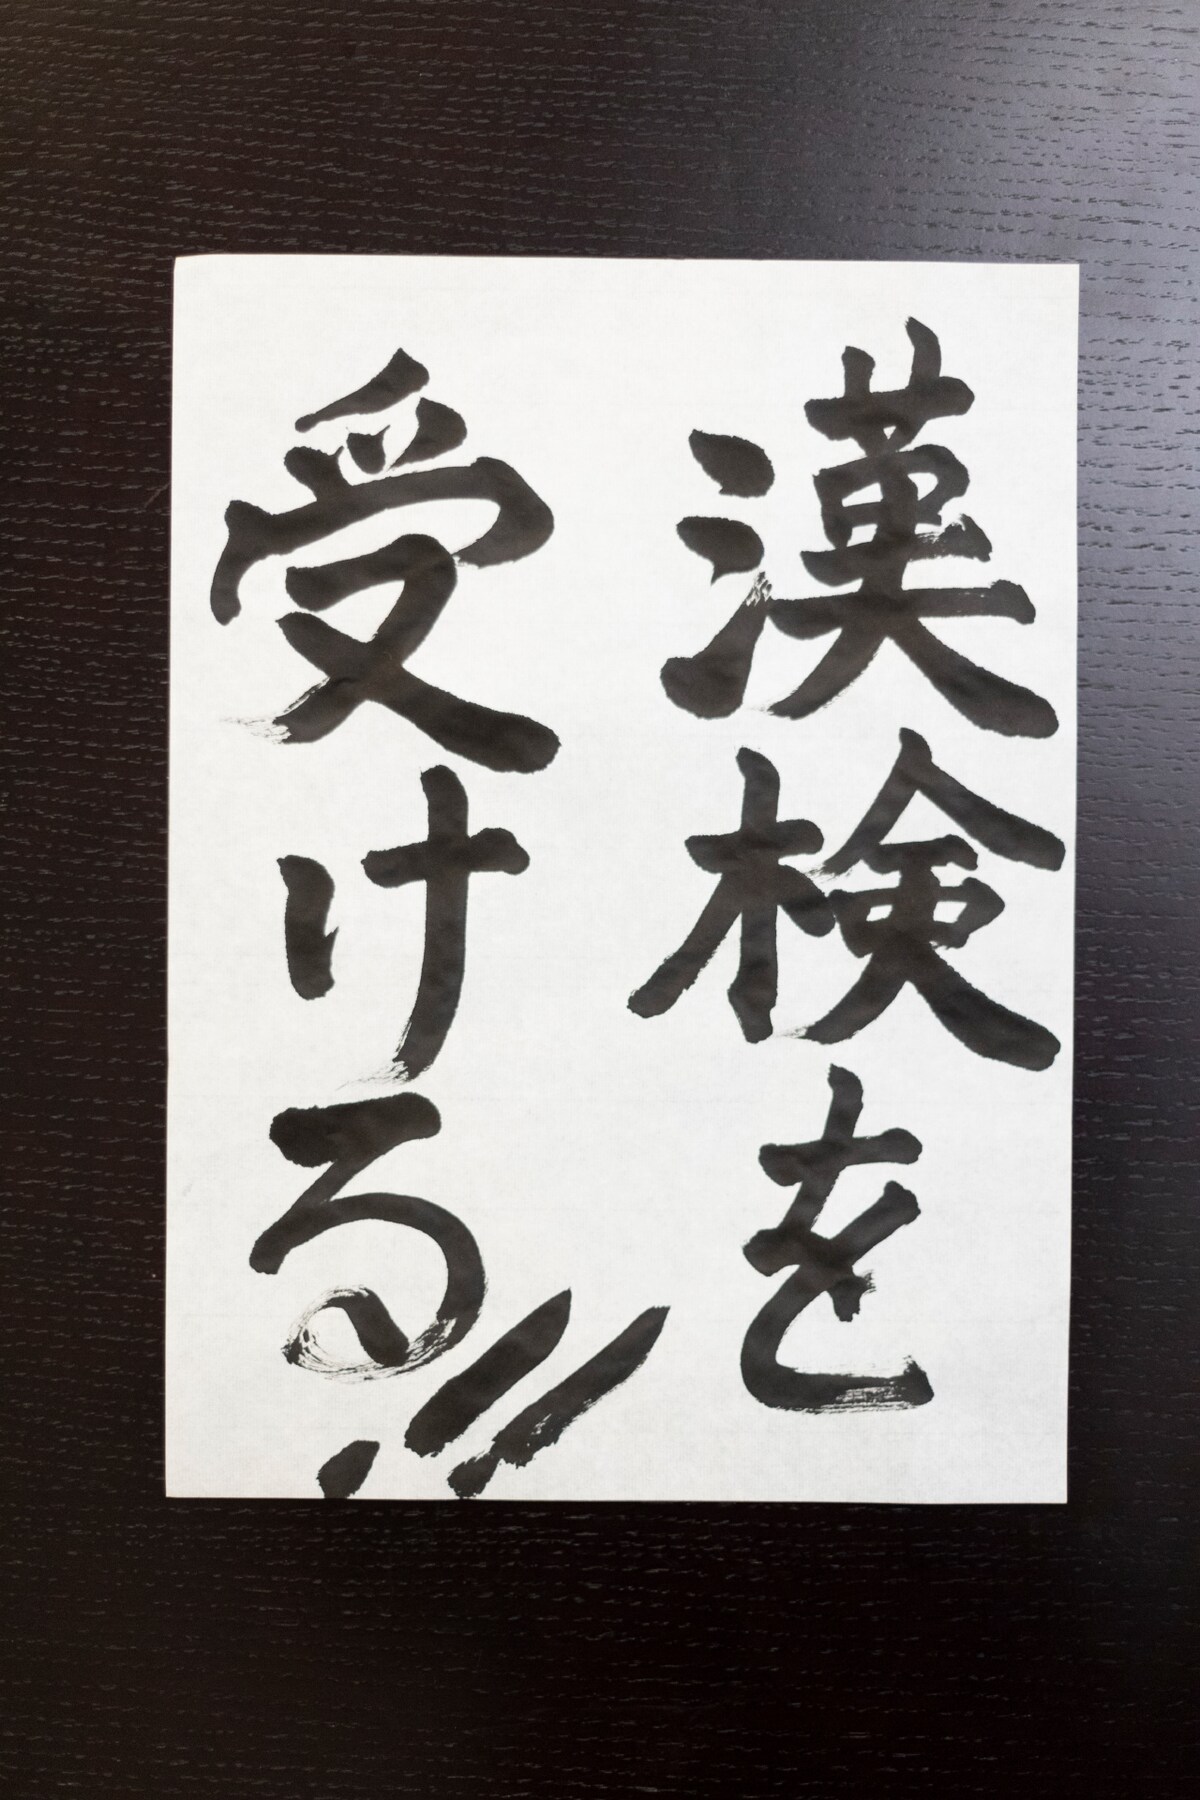 漢検を
受ける!!